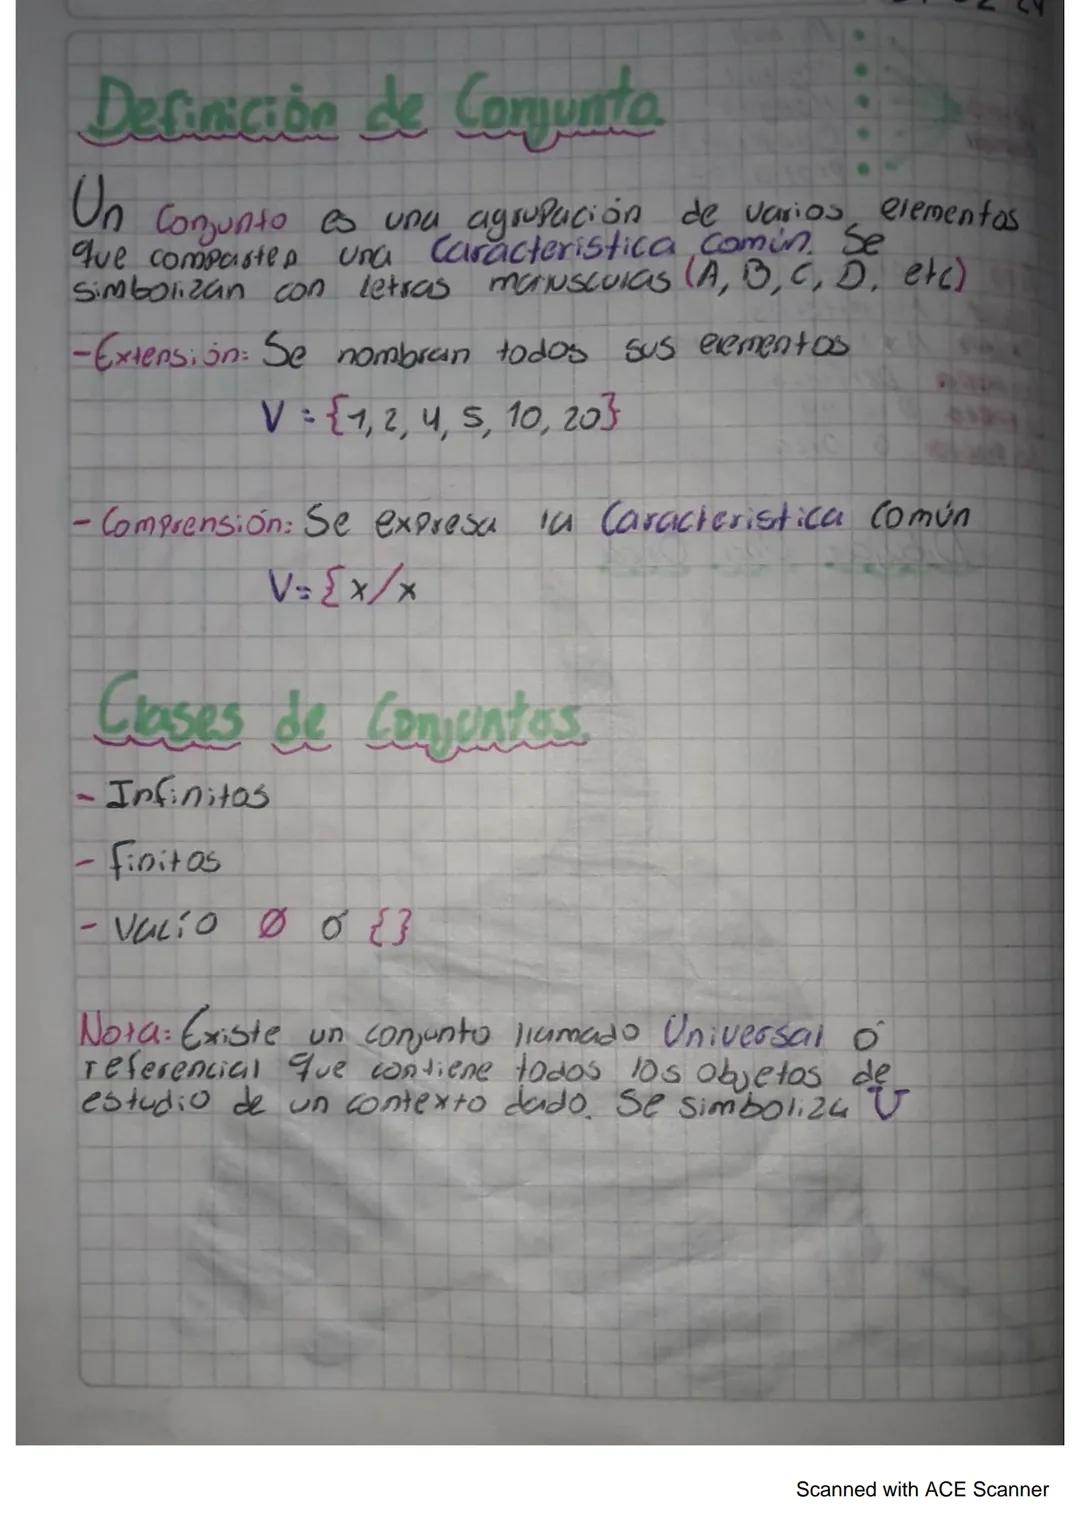 Definición de Conjunto.
Un Conjunto es una agrupación de varios elementos
que comparten una Caracteristica común. Se
simbolizan con letras mayusculas (A, B, C, D, etc)
-Extensión: Se nombran todos sus elementos
V = {1, 2, 4, 5, 10, 20}
- Comprensión: Se expresa la Caracteristica Común
V= {x/x
Clases de Conjuntos.
- Infinitos
- finitos
- Vacío Ø ó {}
Nota: Existe un conjunto llamado Universal ó
referencial que contiene todos los objetos de
estudio de un contexto dado. Se simboliza U
Scanned with ACE Scanner